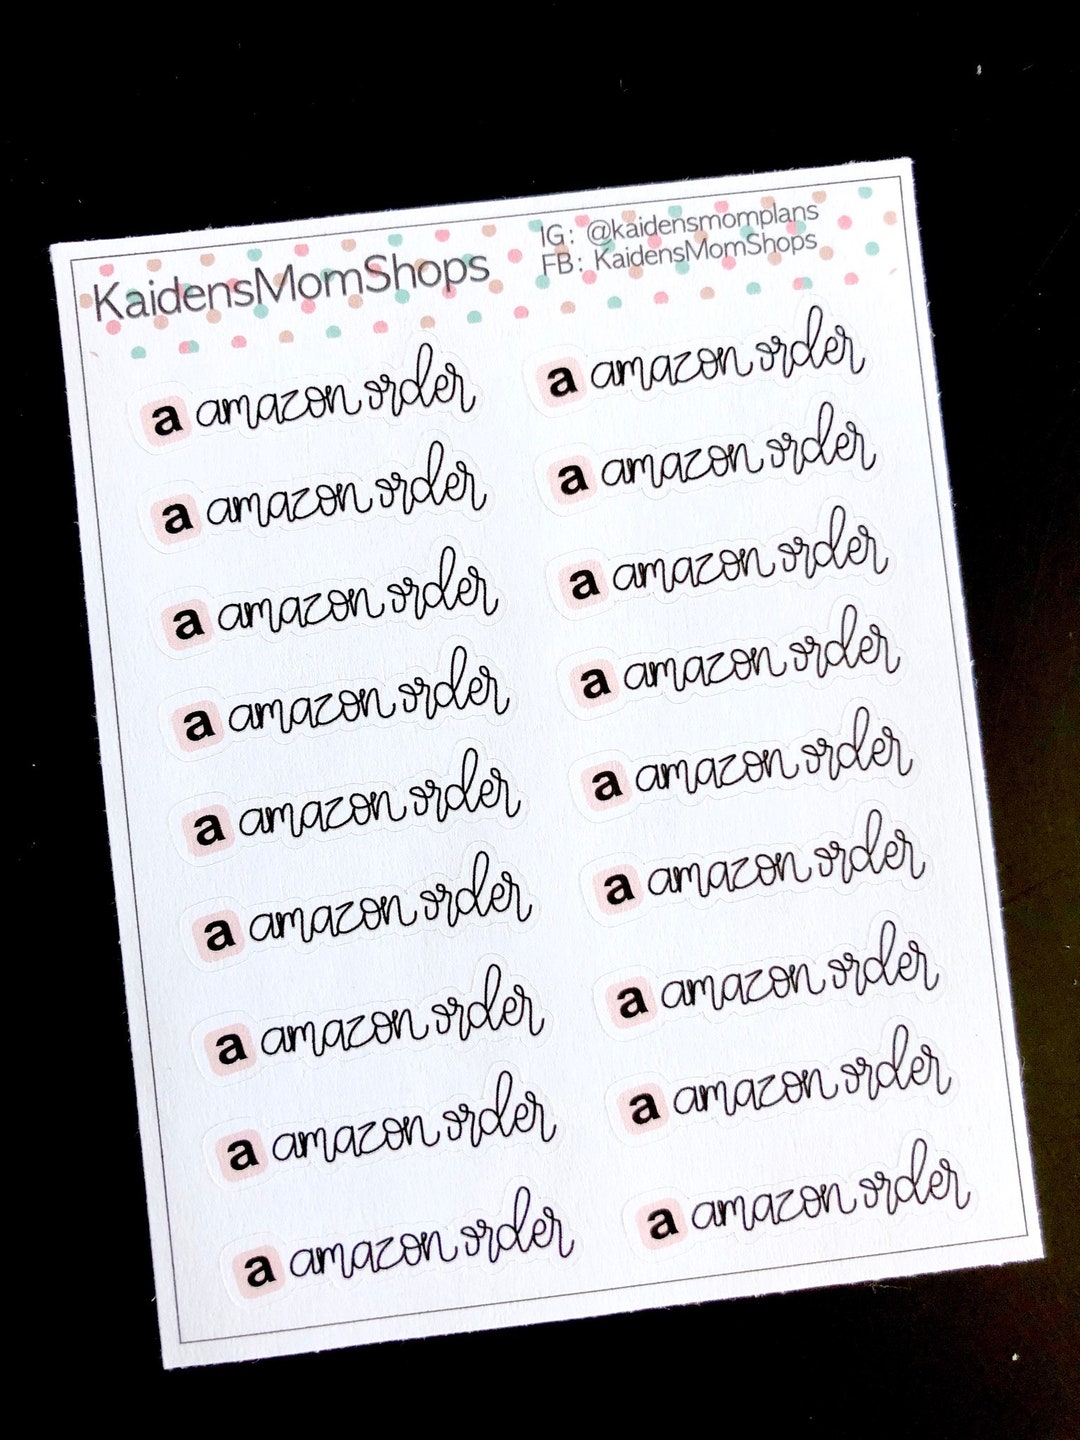 KaidensMomShops
IG: @kaidensmomplans
FB: KaidensMomShops
a amazon order a amazon order
a amazon order a amazon order
a amazon order a amazon order
a amazon order a amazon order
a amazon order a amazon order
a amazon order a amazon order
a amazon order a amazon order
a amazon order a amazon order
a amazon order a amazon order